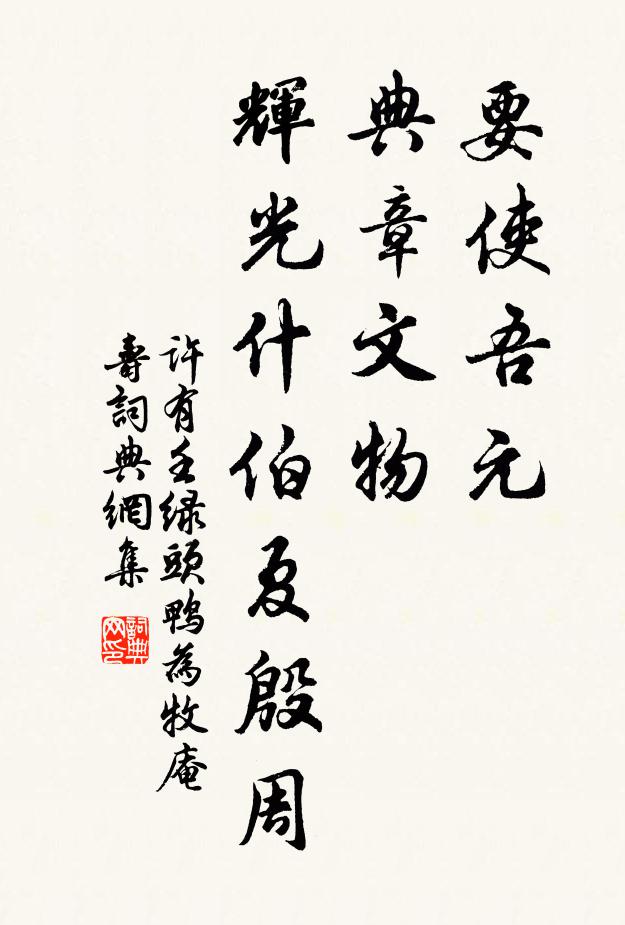 要使吾元
典章文物
輝光什伯夏殷周
許有壬綠頭鴨為牧庵
壽詞典網集
詞典网印